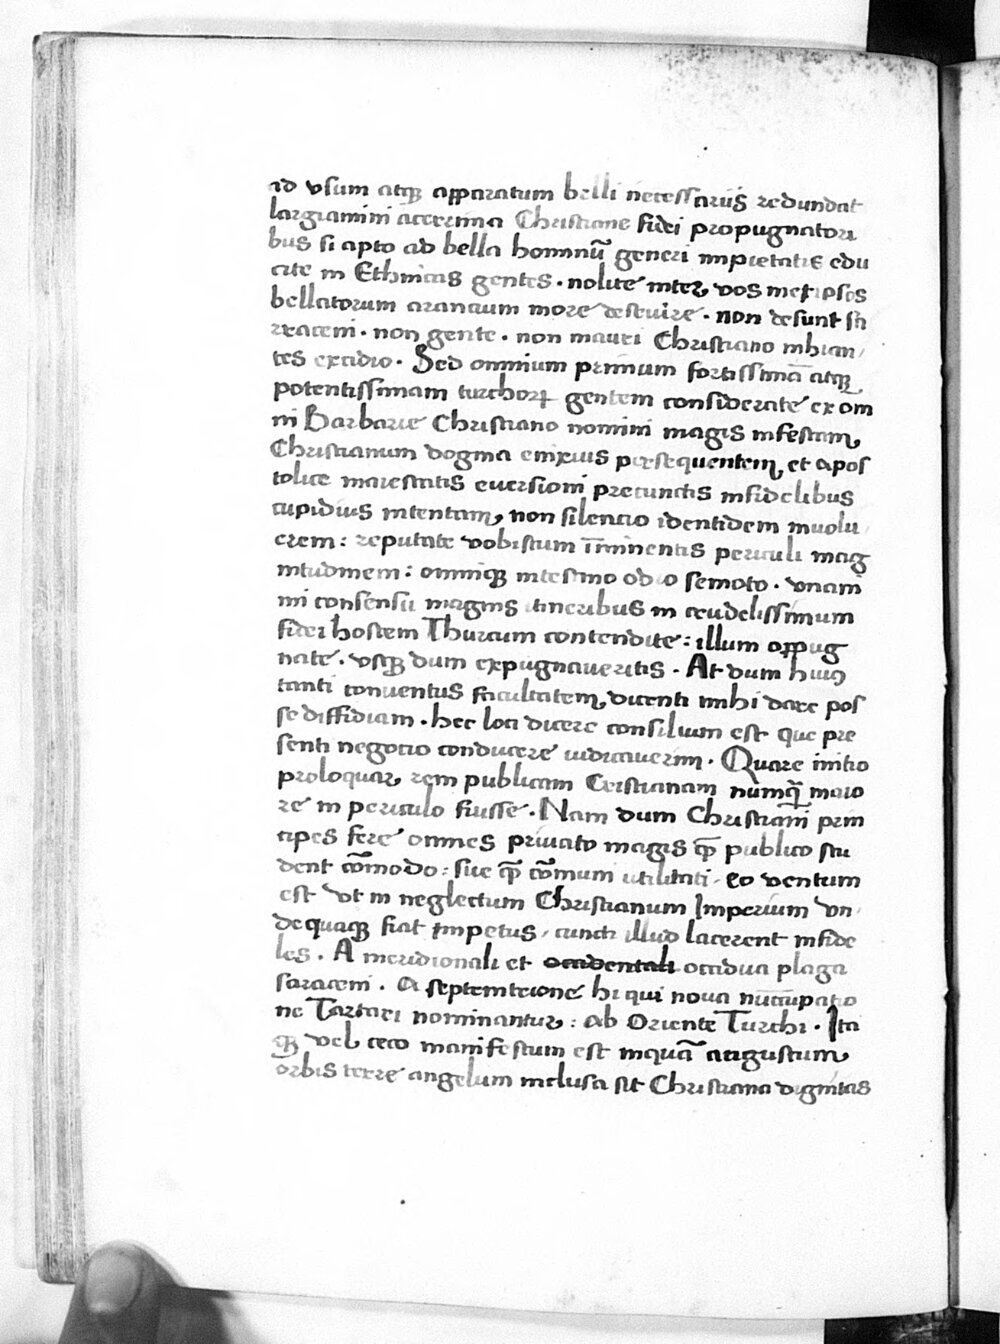 ad vsum atqꝫ apparatum belli necessariis redundat
largiamini acerrima Christiane fidei propugnatori
bus si apto ad bella hominū generi impietatis edu
cite in Ethnicas gentes . nolite inter vos metipsos
bellatorum araneum more deseuire . non desunt sa
rraceni . non gente . non mauri Christiano inhian/
tes excidio . Sed omnium primum fortissimā atqꝫ
potentissimam turchoꝝ gentem considerate ex om
ni Barbarie Christiano nomini magis infestam,
Christianum dogma enixius persequentem, et apos
tolice maiestatis euersioni precunctis infidelibus
cupidius intentam, non silencio identidem inuolu/
crem : reputate vobiscum īminentis periculi mag
nitudinem : omniqꝫ intestino odio semoto . vnani
mi consensu magnis itineribus in crudelissimum
fidei hostem Thurcum contendite : illum oppug
nate . vsqꝫ dum expugnaueritis . At dum huiꝰ
tanti conuentus facultatem, dicenti mihi dare pos
se diffidiam . hec loci dicere consilium est que pre
senti negocio conducere iudicauerim . Quare initio
proloquar, rem publicam Cristianam numqā maio
re in periculo fuisse . Nam dum Christiani prin
cipes fere omnes priuato magis qꝫ publico stu
dent cōmodo : siue qꝫ cōmum utilitati . eo ventum
est vt in neglectum Christianum Imperium vn/
dequaqꝫ fiat impetus / cuncti illud lacerent infide
les . A meridionali et occidentali occidua plaga
saraceni . A septemtrione hi qui noua nūcupatio
ne Tartari nominantur : ab Oriente Turchi . Ita
qꝫ vel ceco manifestum est inquā angustum
orbis terre angelum inclusa sit Christiana dignitas